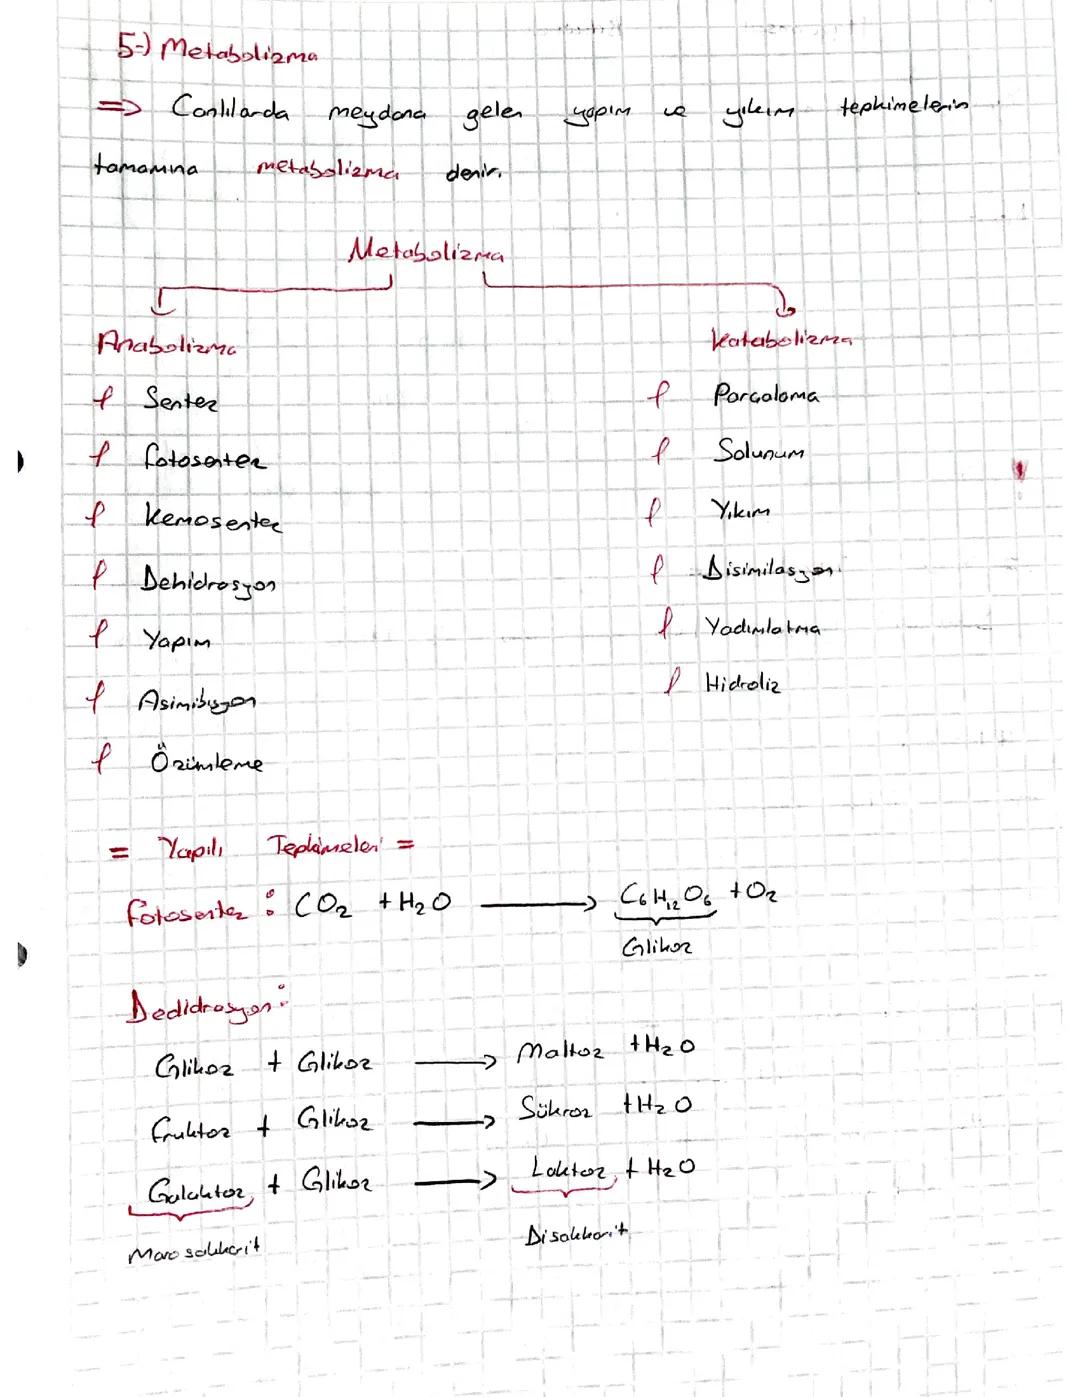 5-) Metabolizma
=> Canlılarda meydana gelen yapım ve yıkım tepkimelerin
tamamına metabolizma denir.
Metabolizma
Anabolizma
Sentez
Fotosentez
Kemosentez
Dehidrasyon
Yapım
Asimilasyon
Özümleme
Katabolizma
Parçalama
Solunum
Yıkım
Disimilasyon
Yadımlatma
Hidroliz
= Yapılı Tepkimeleri =
Fotosentez : CO₂ + H₂O → C₆H₁₂O₆ + O₂
Glikoz
Dedidrasyon :
Glikoz + Glikoz → Maltoz + H₂O
Fruktoz + Glikoz → Sükroz + H₂O
Galaktoz + Glikoz → Laktoz + H₂O
Monosakkarit
Disakkarit